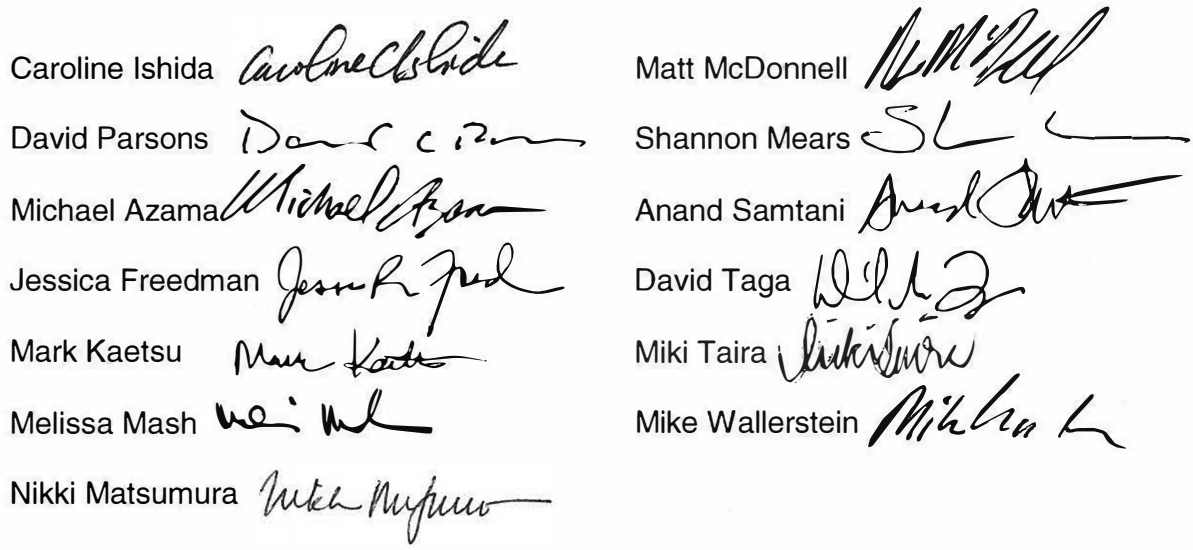 Caroline Ishida Caroline C Ishida
David Parsons
Michael Azama Michael Azama
Jessica Freedman
Mark Kaetsu Mark Kaetsu
Melissa Mash
Nikki Matsumura
Matt McDonnell
Shannon Mears
Anand Samtani Anand
David Taga
Miki Taira Miki Taira
Mike Wallerstein